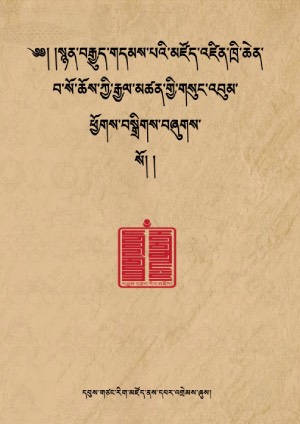 ༄༅། །སྙན་བརྒྱུད་གདམས་པའི་མཛོད་འཛིན་ཁྲི་ཆེན་
བ་སོ་ཆོས་ཀྱི་རྒྱལ་མཚན་གྱི་གསུང་འབུམ་
ཕྱོགས་བསྒྲིགས་བཞུགས་
སོ། །
དབུས་གཙང་རིག་མཛོད་ནས་དཔར་འགྲེམས་ཞུས།